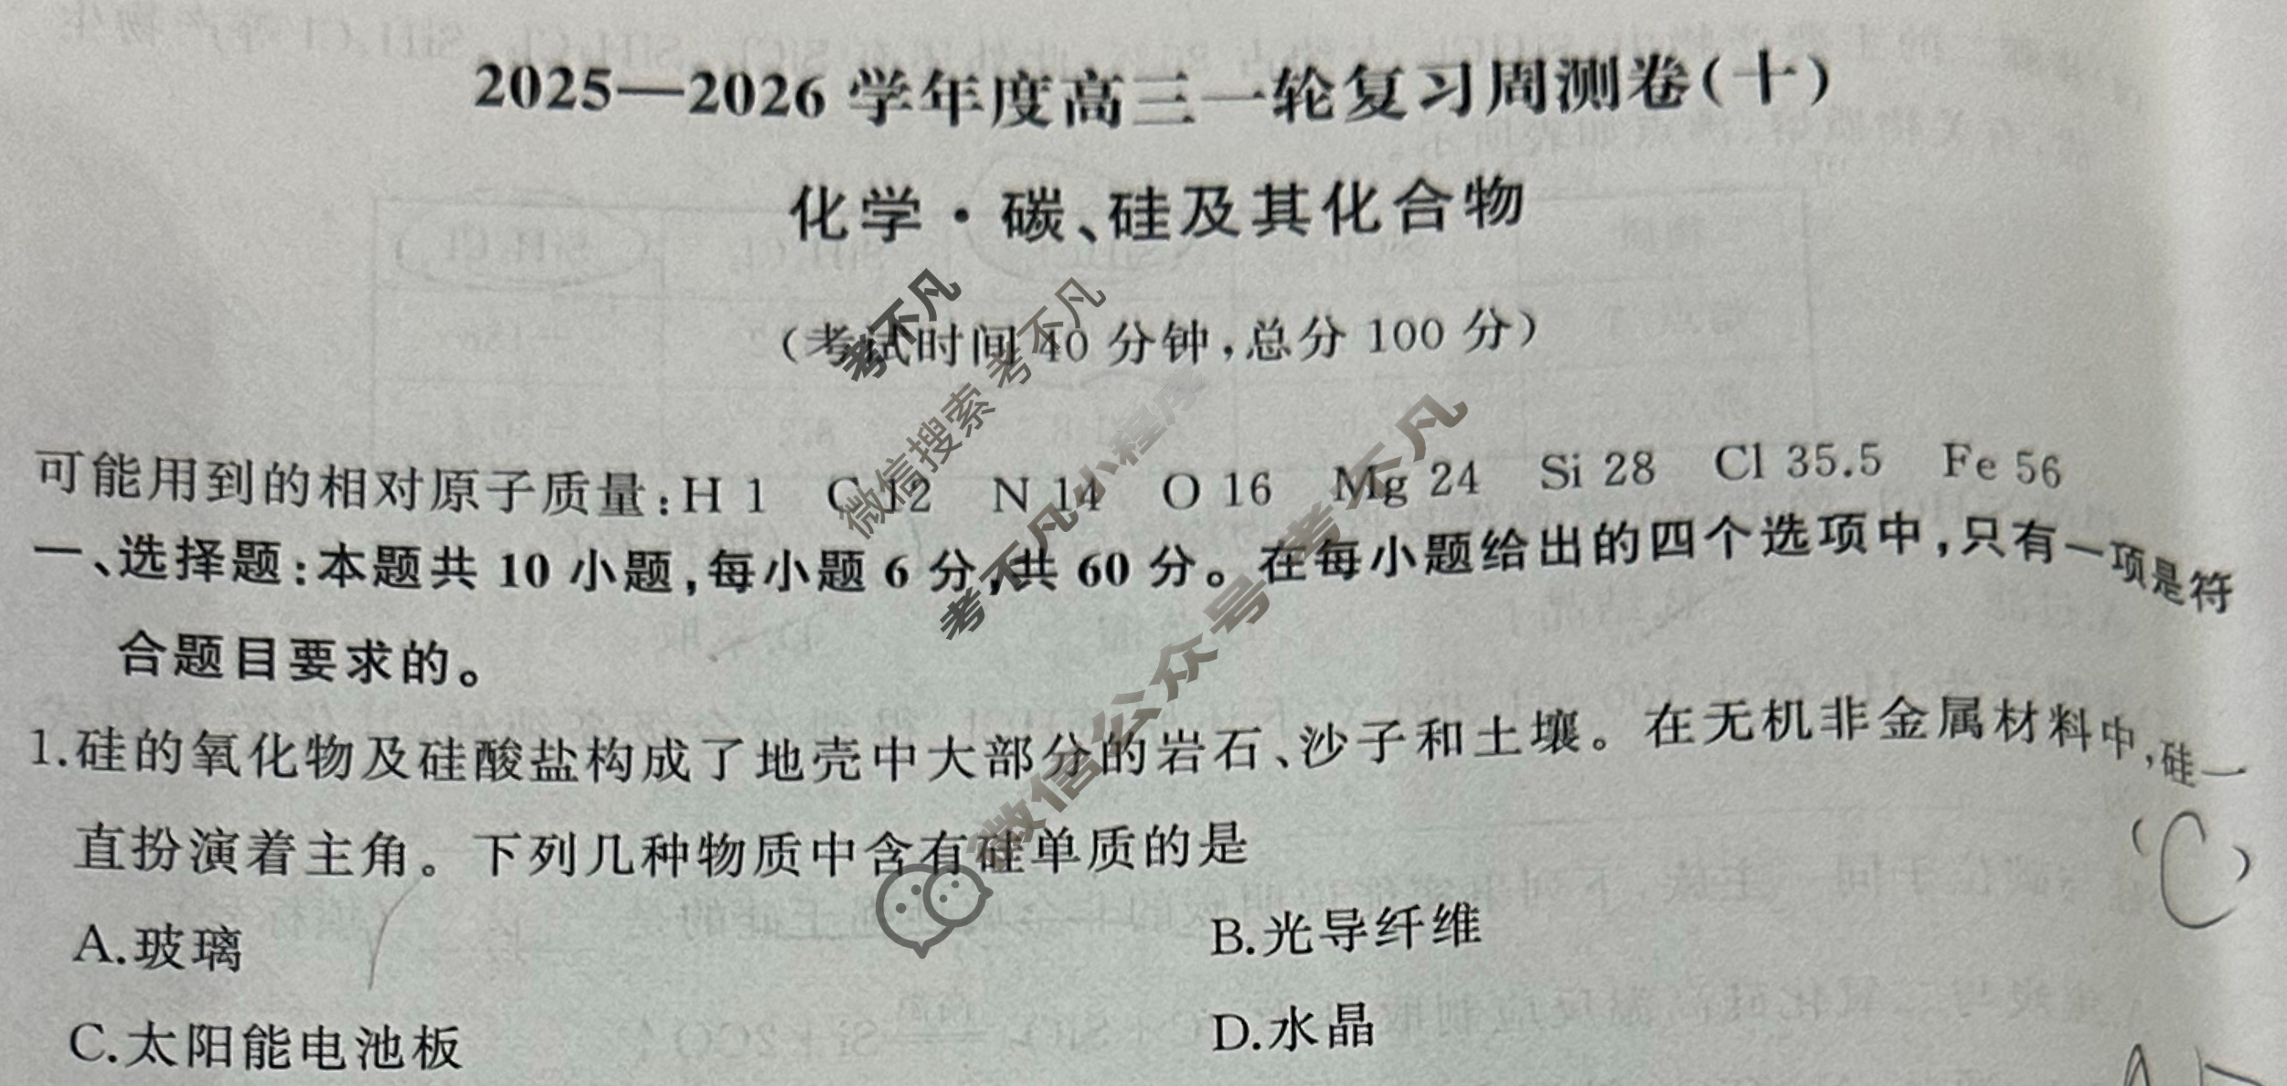 2025—2026 学年度高三一轮复习周测卷(十)
化学·碳、硅及其化合物
(考试时间 40 分钟,总分 100 分)
可能用到的相对原子质量:H 1 C 12 N 14 O 16 Mg 24 Si 28 Cl 35.5 Fe 56
一、选择题:本题共 10 小题,每小题 6 分,共 60 分。在每小题给出的四个选项中,只有一项是符
合题目要求的。
1.硅的氧化物及硅酸盐构成了地壳中大部分的岩石、沙子和土壤。在无机非金属材料中,硅一
直扮演着主角。下列几种物质中含有硅单质的是
(C)
A.玻璃
B.光导纤维
C.太阳能电池板
D.水晶
考不凡
微信搜索 考不凡
考不凡小程序
微信公众号 考不凡